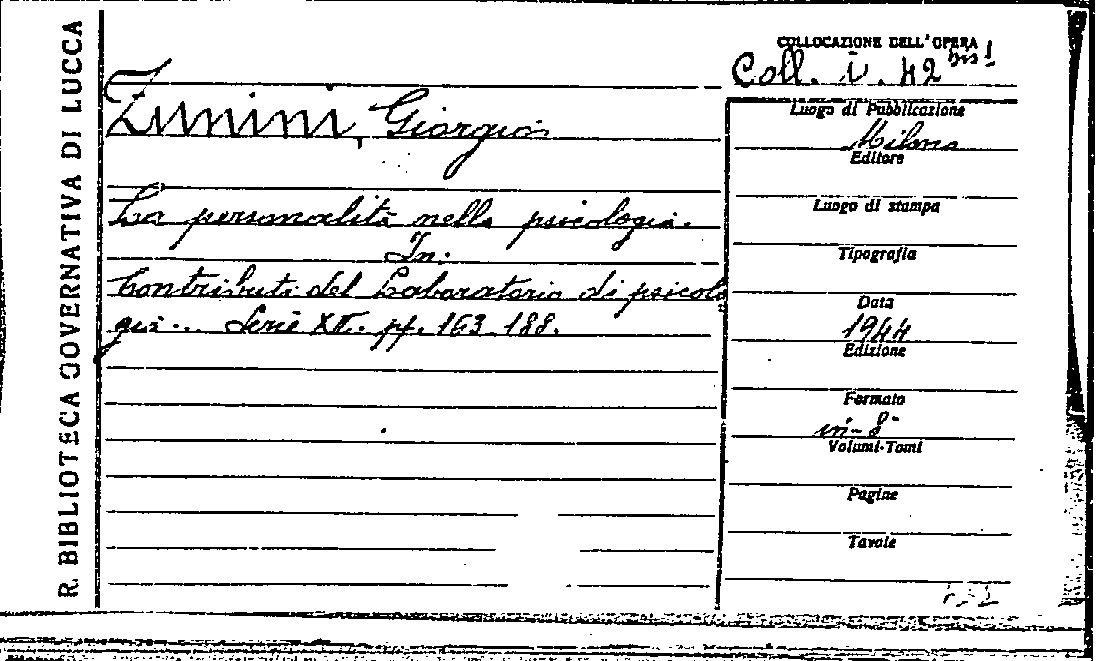 R. BIBLIOTECA GOVERNATIVA DI LUCCA
COLLOCAZIONE DELL'OPERA
Coll. V. 42 bis 1
Zunini, Giorgio
La personalità nella psicologia.
In:
Contributi del Laboratorio di psicolo
gia... Serie XII. pp. 163-188.
Luogo di Pubblicazione
Milano
Editore
Luogo di stampa
Tipografia
Data
1944
Edizione
Formato
in-8°
Volumi-Tomi
Pagine
Tavole